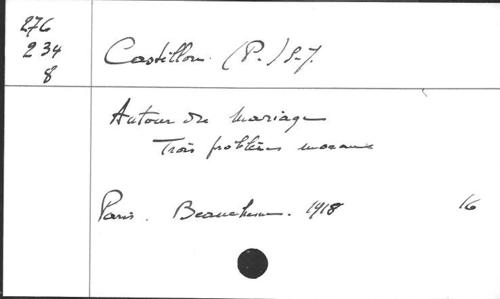 276
234
8
Castillon (P.) S.J.
Autour du mariage
Trois problèmes moraux
Paris. Beauchesne. 1918 16